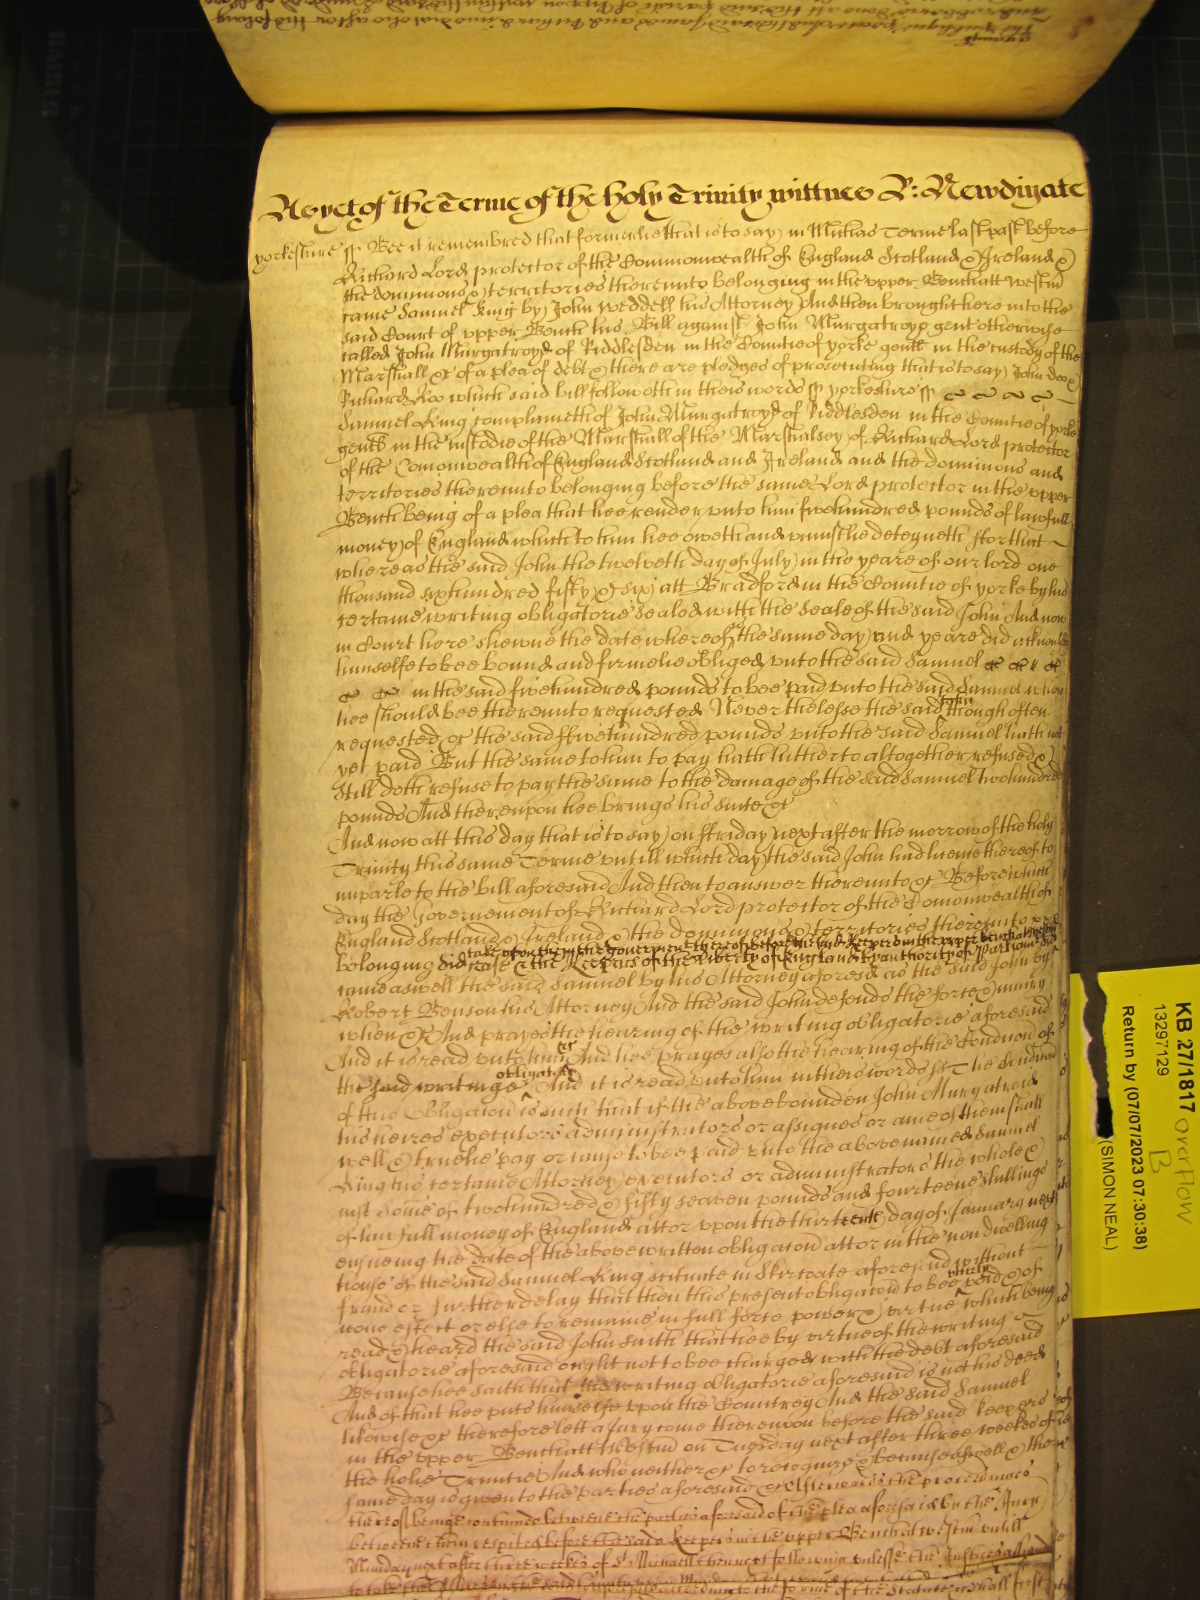 As yet of the Terme of the holy Trinity wittnes R: Newdigate
yorkeshire ss Bee it remembred that formerlie that is to say in Michas Terme last past before
Richard Lord protector of the Commonwealth of England Scotland & Ireland &
the dominions & territories thereunto belonging in the upper Bench att Westm
came Samuel King by John Weddell his Attorney And then brought here into the
said Court of upper Bench his Bill against John Murgatroyd gent otherwise
called John Murgatroyd of Riddlesden in the Countie of yorke gent in the custody of the
Marshall &c of a plea of debt & there are pledges of prosecuting that is to say John doe &
Richard Roo which said bill followeth in theis words ss yorkshire ss
Samuel King complaineth of John Murgatroyd of Riddlesden in the Countie of yorke
gent in the custodie of the Marshall of the Marshalsey of Richard Lord protector
of the Comonwealth of England Scotland and Ireland and the dominions and
territories thereunto belonging before the same Lord protector in the upper
Bench being of a plea that hee render unto him five hundred pounds of lawfull
money of England which to him hee oweth and uniustlie deteyneth for that
whereas the said John the twelveth day of July in the yeare of our lord one
thousand six hundred fifty & six att Bradford in the Countie of yorke by his
certaine writing obligatorie Sealed with the Seale of the said John And now
in Court here shewne the date whereof is the same day and yeare did acknowledge
himselfe to bee bound and firmelie obliged unto the said Samuel
in the said five hundred pounds to bee paid unto the said Samuel when
hee should bee thereunto requested Never thelesse the said John though often
requested &c the said ffive hundred pounds unto the said Samuel hath not
yet paid But the same to him to pay hath hitherto altogether refused &
Still doth refuse to pay the same to the damage of the said Samuel Two hundred
pounds And thereupon hee brings his suite &c
And now att this day that is to say on ffriday next after the morrow of the holy
Trinity this same Terme untill which day the said John had licence thereof to
imparle to the bill aforesaid And then to answer thereunto &c Before which
day the Governement of Richard Lord protector of the Comonwealth of
England Scotland & Ireland & the dominions & territories thereunto
belonging did cease & the Keepers of the Liberty of England by authority of Parliam did
take upon them the Government thereof before the said Keepers in the upper bench att Westm
came aswell the said Samuel by his Attorney aforesd as the said John by
Robert Benson his Attorney And the said John defends the force & iniury
when &c And prayes the hearing of the writing obligatorie aforesaid
And it is read unto him &c And hee prayes also the hearing of the Condicon of
the said writinge obligatory And it is read unto him in theis words ss The Condicon
of this Obligacon is such that if the above bounden John Murgatroid
his heires executors administrators or assignes or anie of them shall
well & truelie pay or cause to bee paid unto the above named Samuel
King his certaine Attorney executors or administrators the whole &
iust some of two hundred & fifty seaven pounds and fourteene shillings
of lawfull money of England att or upon the thirteenth day of January next
ensueing the date of the above written obligacon att or in the now dwelling
house of the said Samuel King scituate in Skircoate aforesaid without
fraud or further delay that then this present obligacon to bee utterly void & of
none effect or else to remaine in full force power & virtue which being
read & heard the said John saith that hee by virtue of the writing
obligatorie aforesaid ought not to bee charged with the debt aforesaid
Because hee saith that the writing obligatorie aforesaid is not his deed
And of that hee puts himselfe upon the Countrey And the said Samuel
likewise &c therefore lett a Jury come thereupon before the said keepers
in the upper Bench att Westm on Tuesday next after three weekes of
the holie Trinitie And who neither &c to recognize & because aswell & the
same day is given to the parties aforesaid &c Afterwards the proceedings
thereof beinge continued betweene the parties aforesaid of the plea aforesaid by the Jury
betweene them respited before the said keepers in the upper Bench att Westm untill
Munday next after three weekes of St Michaell then next following unlesse the Justices
KB 27/1817 overflow
13297129 B
Return by (07/07/2023 07:30:38)
(SIMON NEAL)